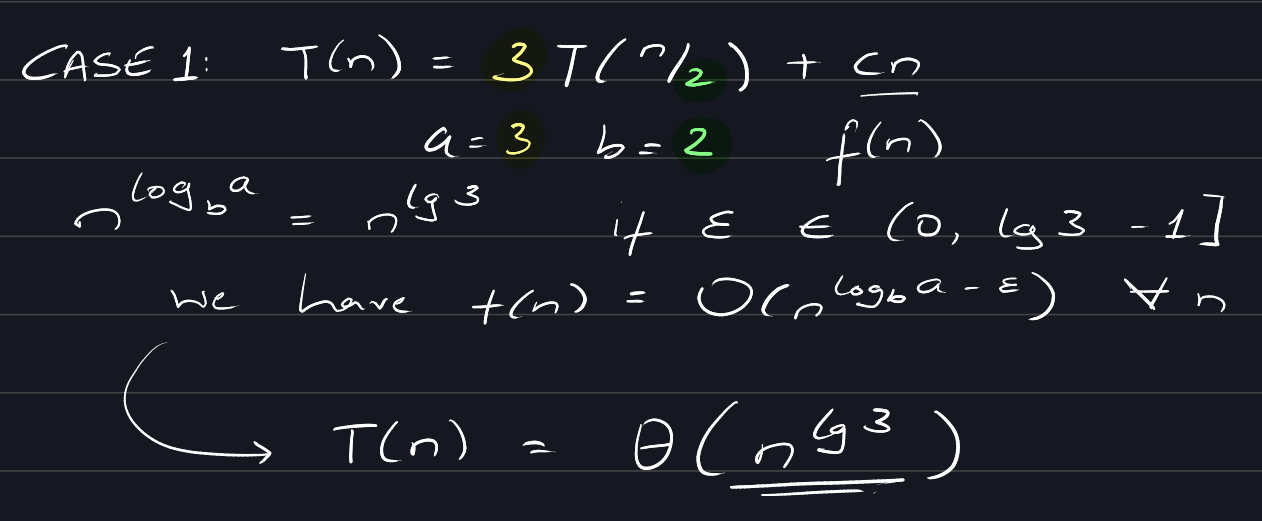 CASE 1: T(n) = 3 T(n/2) + cn
a = 3 b = 2 f(n)
n^{log_b a} = n^{lg 3} if ε ∈ (0, lg 3 - 1]
we have f(n) = O(n^{log_b a - ε}) ∀ n
T(n) = θ(n^{lg 3})